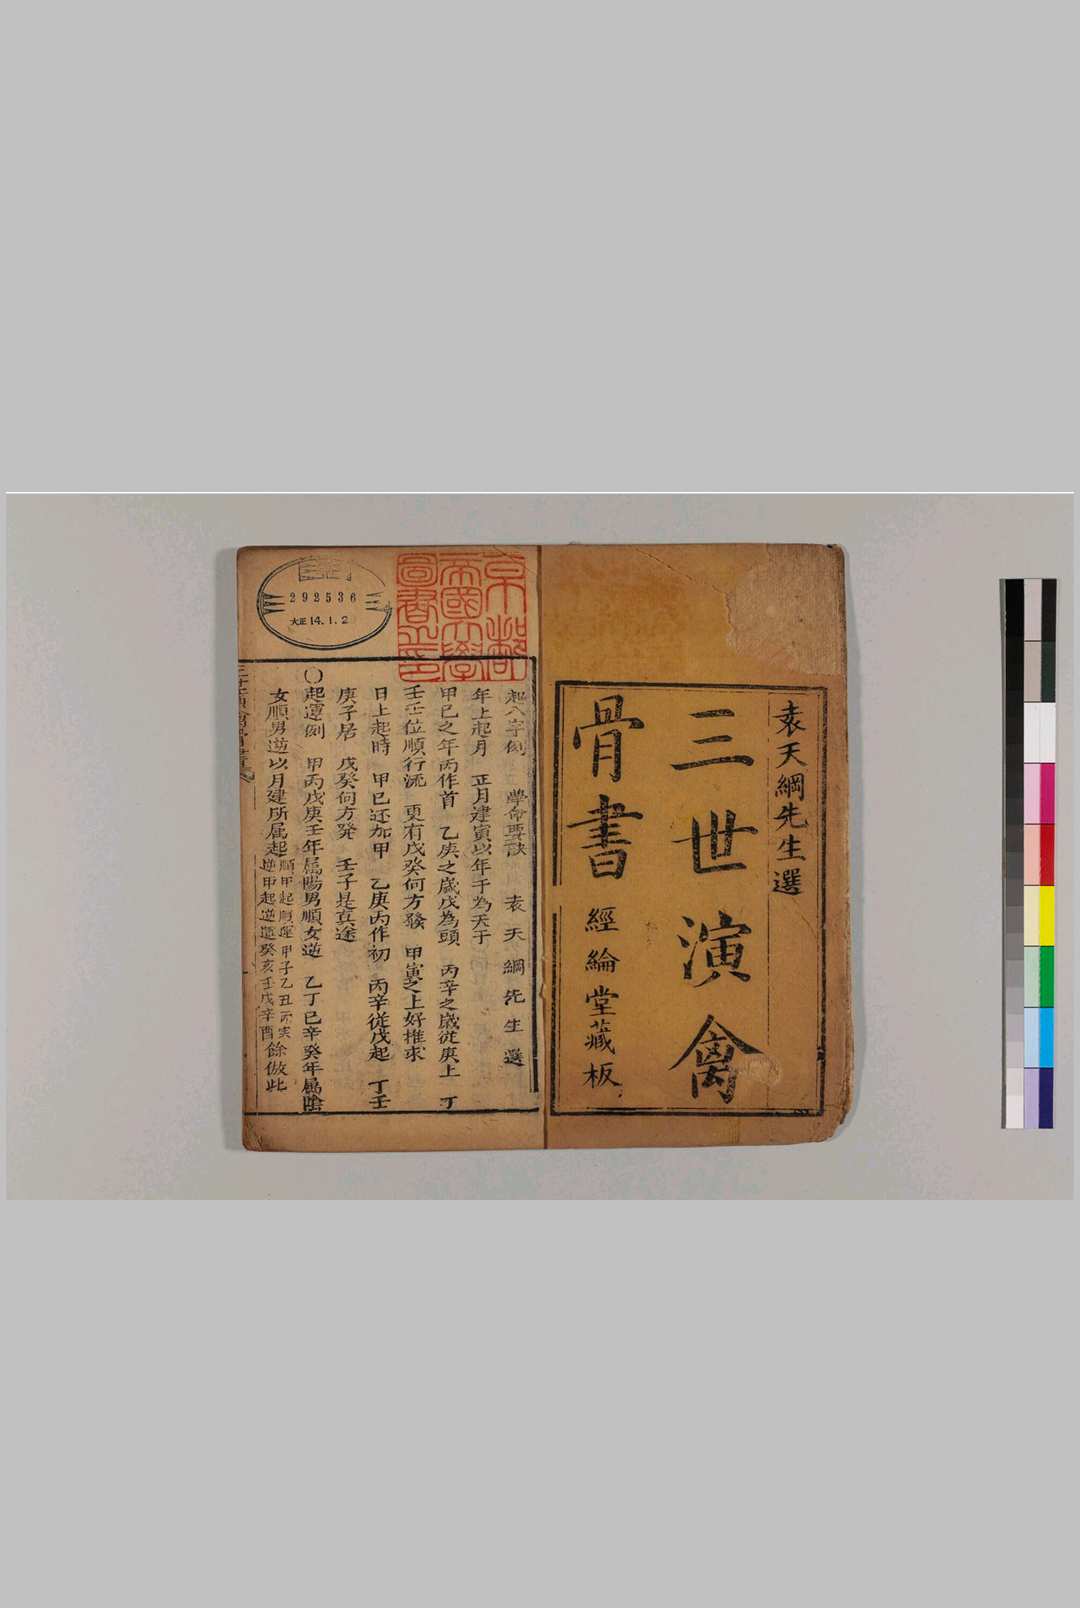 袁天綱先生選
三世演禽
骨書
經綸堂藏板
京都
帝國大學
圖書之印
292536
大正14.1.2
起八字例 學命要訣 袁天綱先生選
年上起月 正月建寅以年干為天干
甲己之年丙作首 乙庚之歲戊為頭 丙辛之歲從庚上 丁
壬壬位順行流 更有戊癸何方發 甲寅之上好推求
日上起時 甲己还加甲 乙庚丙作初 丙辛從戊起 丁壬
庚子居 戊癸何方発 壬子是真途
〇起運例 甲丙戊庚壬年属陽男順女逆 乙丁己辛癸年属陰
女順男逆以月建所属起順甲起順運甲子乙丑丙寅
逆甲起逆運癸亥壬戌辛酉餘倣此